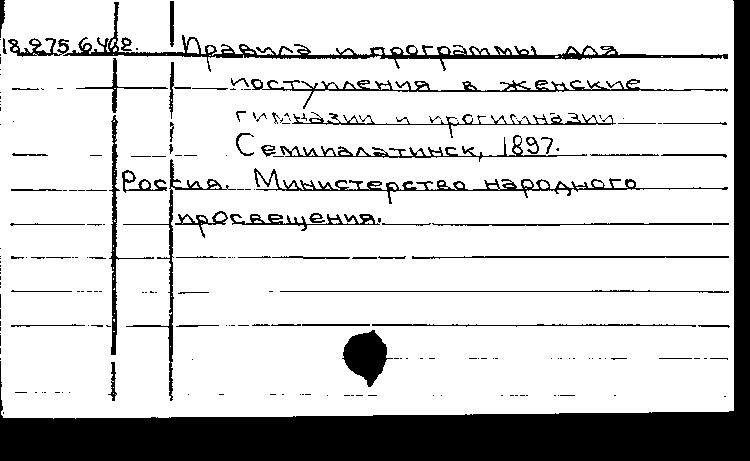 18.275.6.462. Правила и программы для
поступления в женские
гимназии и прогимназии
Семипалатинск, 1897.
Россия. Министерство народного
просвещения.